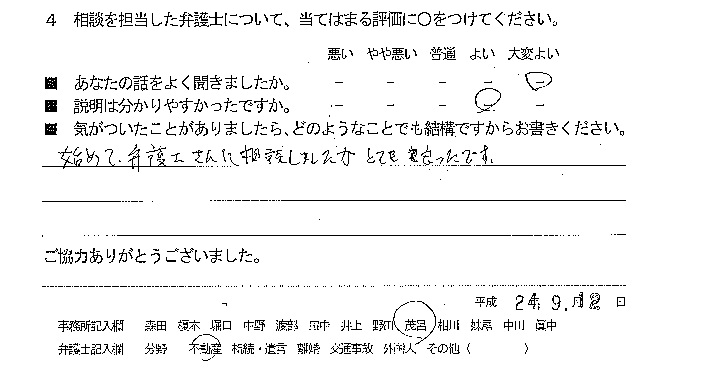 4 相談を担当した弁護士について、当てはまる評価に○をつけてください。
悪い やや悪い 普通 よい 大変よい
■ あなたの話をよく聞きましたか。 − − − − −
■ 説明は分かりやすかったですか。 − − − − −
■ 気がついたことがありましたら、どのようなことでも結構ですからお書きください。
始めて、弁護士さんに相談しましたが とても 良かったです。
ご協力ありがとうございました。
平成 24. 9. 月12 日
事務所記入欄 森田 榎本 堀口 中野 渡部 田中 井上 野田 茂呂 相川 妹尾 中川 眞中
弁護士記入欄 分野 不動産 相続・遺言 離婚 交通事故 外国人 その他（ ）